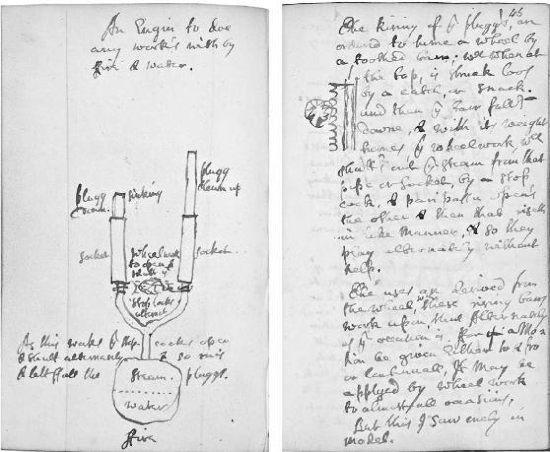 An Engin to doe
any works with by
fire & water.
plugg
down
sinking
plugg
drawn up
socket
wheelwork
to open
shutt y
stop cocks
alternat
socket
As this works y stop cocks open
& shutt alternately & so rais
& lett fall the pluggs.
Steam.
water
fire
45
The rising of y pluggs, are
ordred to turne a wheel by
a toothed barr: wch when at
the top, is struck loos
by a catch, or snack.
and then y barr falls
downe, & with its weight
turnes y wheelwork wch
shutts out y steam from that
pipe or socket, by a stop
cock, & pari passu opens
the other & then that riseth
in like manner, & so they
play alternately without
help.
The uses are derived from
the wheel, wch these rising barrs
work upon, that alternately
as y occasion is. for a Mo
tion be given either to & fro
or continuall, It may be
applyed by wheel work
to almost all occasions,
But this I saw onely in
model.